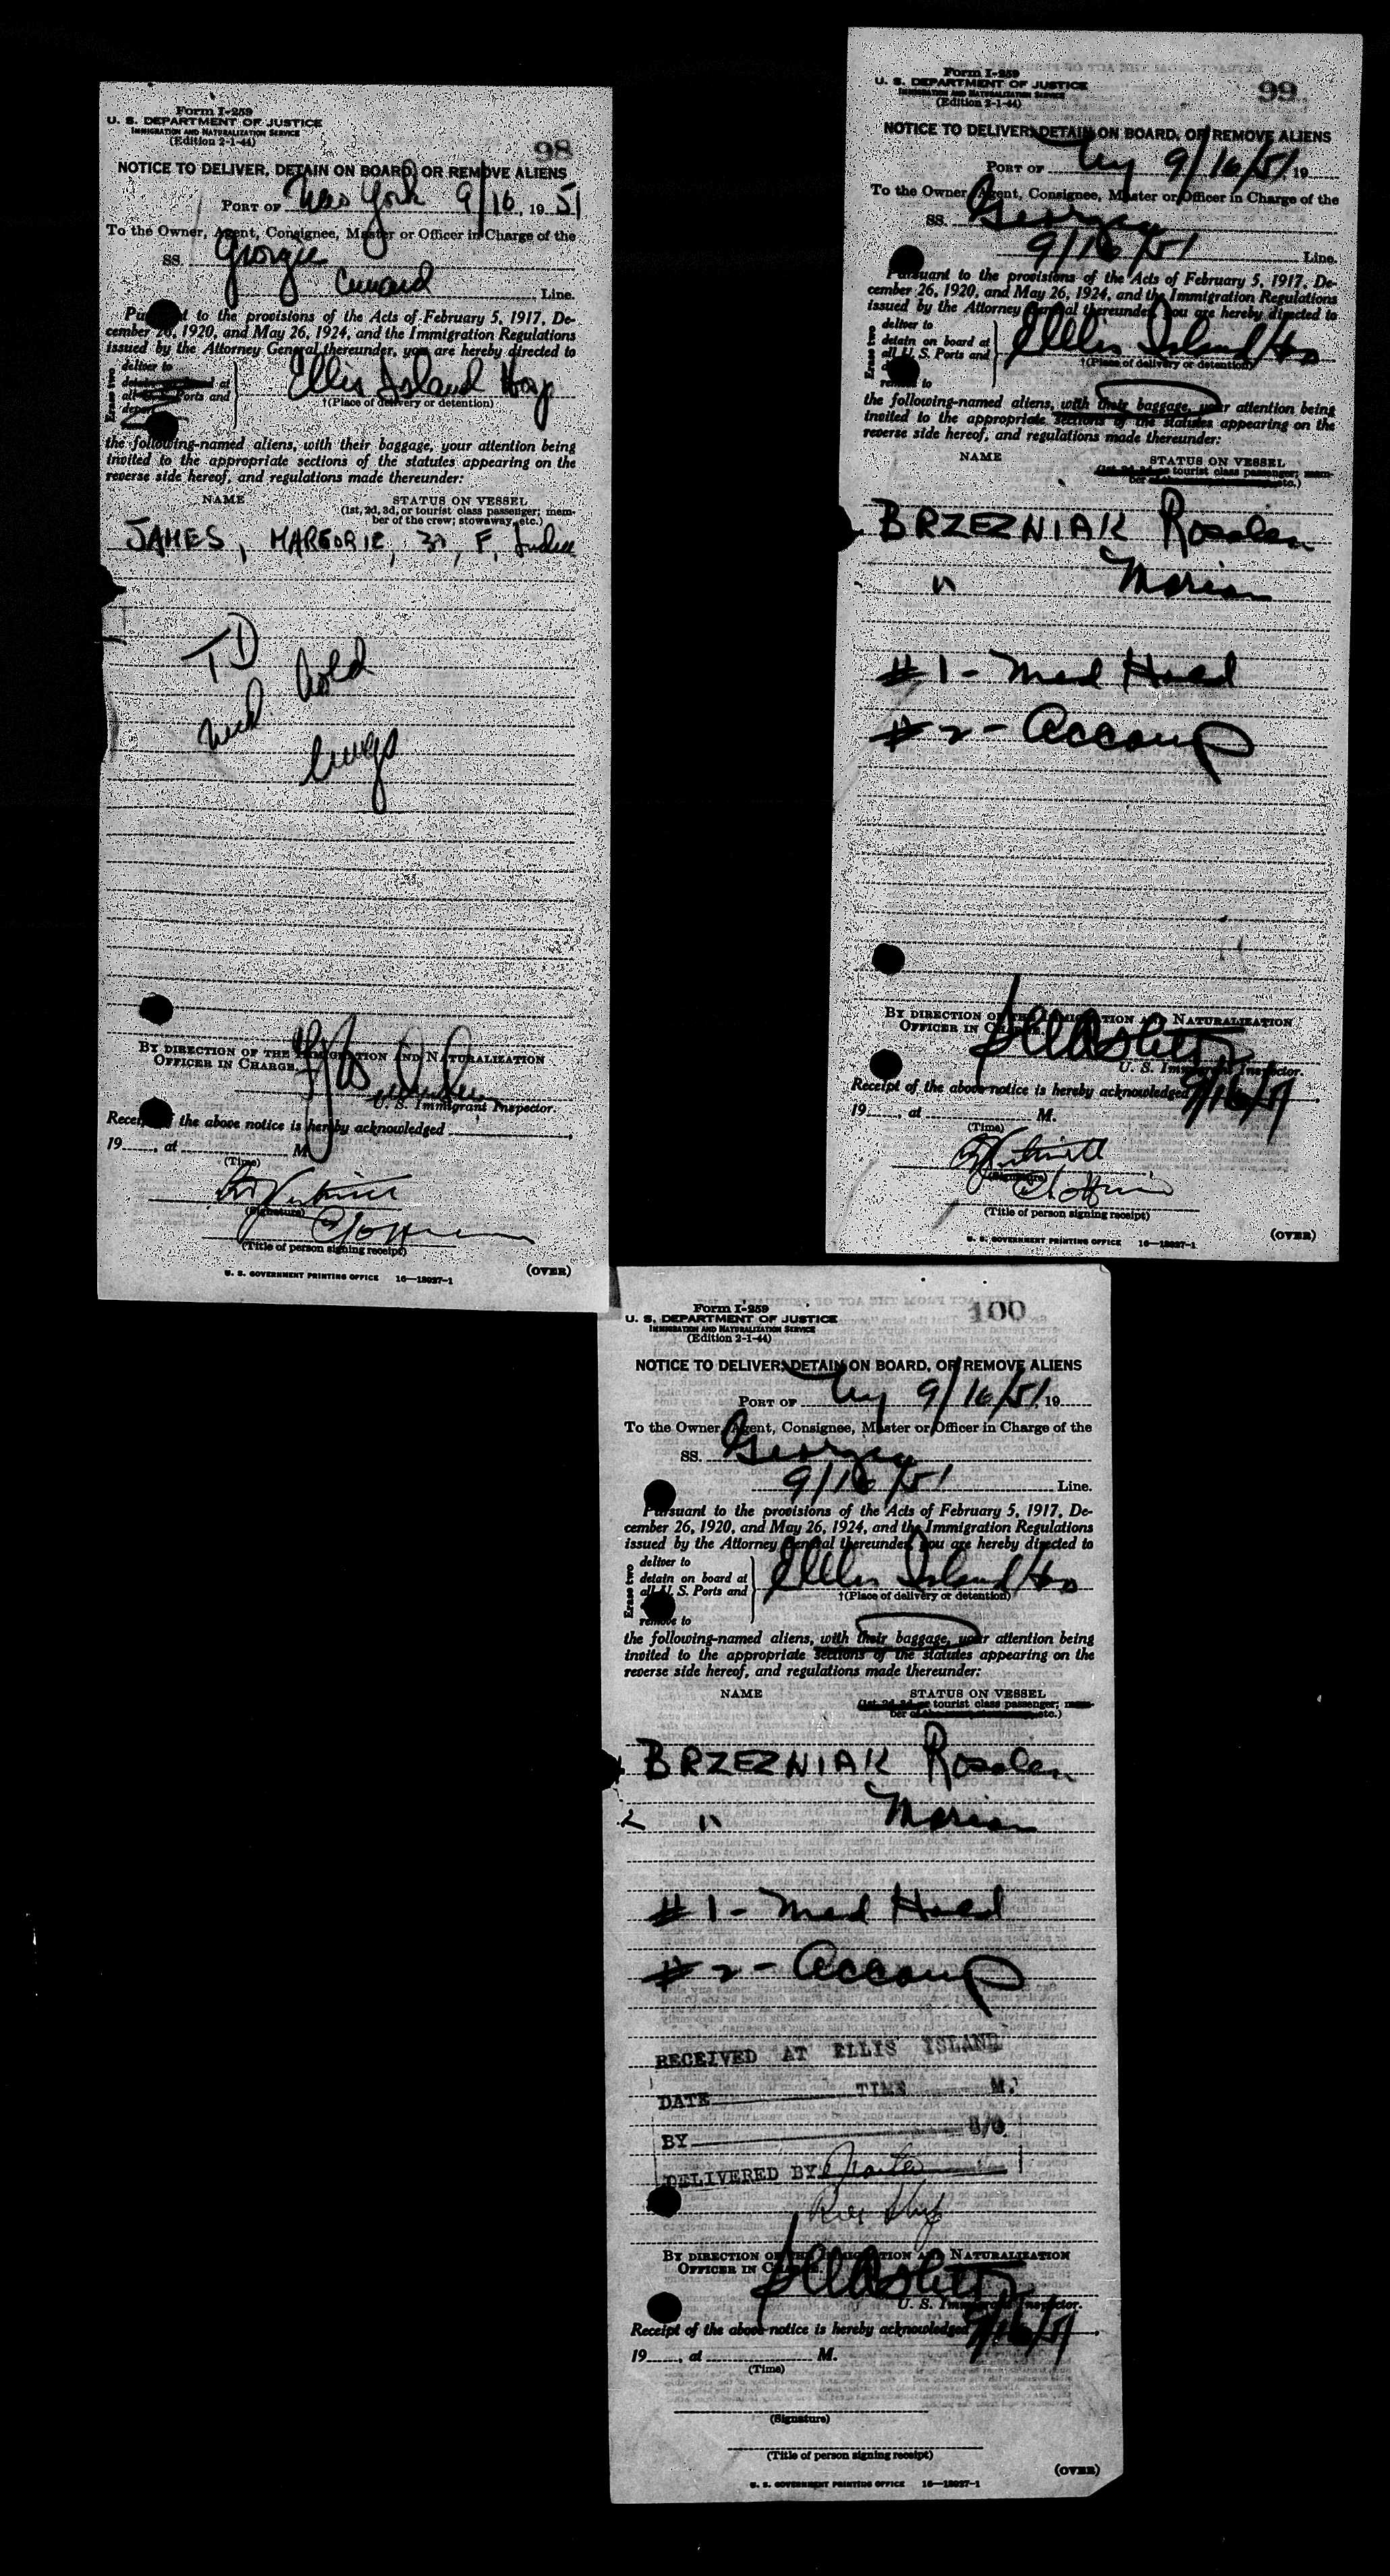 Form I-259
U. S. DEPARTMENT OF JUSTICE
IMMIGRATION AND NATURALIZATION SERVICE
(Edition 2-1-44)
98
NOTICE TO DELIVER, DETAIN ON BOARD, OR REMOVE ALIENS
PORT OF New York 9/16, 19 51
To the Owner, Agent, Consignee, Master or Officer in Charge of the
SS. Georgic
Cunard Line.
Pursuant to the provisions of the Acts of February 5, 1917, De-
cember 26, 1920, and May 26, 1924, and the Immigration Regulations
issued by the Attorney General thereunder, you are hereby directed to
Erase two
deliver to
at
all Ports and
Ellis Island Hosp
†(Place of delivery or detention)
the following-named aliens, with their baggage, your attention being
invited to the appropriate sections of the statutes appearing on the
reverse side hereof, and regulations made thereunder:
NAME STATUS ON VESSEL
(1st, 2d, 3d, or tourist class passenger; mem-
ber of the crew; stowaway, etc.)
JAMES, MARGORIE, F,
TD
med hold
lungs
BY DIRECTION OF THE IMMIGRATION AND NATURALIZATION
OFFICER IN CHARGE.
U. S. Immigrant Inspector.
Receipt of the above notice is hereby acknowledged
19 , at M.
(Time)
(Signature)
(Title of person signing receipt)
(OVER)
U. S. GOVERNMENT PRINTING OFFICE 16—18927-1
Form I-259
U. S. DEPARTMENT OF JUSTICE
IMMIGRATION AND NATURALIZATION SERVICE
(Edition 2-1-44)
99
NOTICE TO DELIVER, DETAIN ON BOARD, OR REMOVE ALIENS
PORT OF NY 9/16/51 19
To the Owner, Agent, Consignee, Master or Officer in Charge of the
SS. Georgic
9/16/51 Line.
Pursuant to the provisions of the Acts of February 5, 1917, De-
cember 26, 1920, and May 26, 1924, and the Immigration Regulations
issued by the Attorney General thereunder, you are hereby directed to
Erase two
deliver to
detain on board at
all U. S. Ports and
remove to
Ellis Island Hos
†(Place of delivery or detention)
the following-named aliens, with their baggage, your attention being
invited to the appropriate sections of the statutes appearing on the
reverse side hereof, and regulations made thereunder:
NAME STATUS ON VESSEL
tourist class passenger; mem-
ber etc.)
BRZEZNIAK
" Marian
#1 - Med Hold
#2 - Accomp
BY DIRECTION OF THE IMMIGRATION AND NATURALIZATION
OFFICER IN CHARGE.
U. S. Immigrant Inspector.
Receipt of the above notice is hereby acknowledged 9/16/51
19 , at M.
(Time)
(Signature)
(Title of person signing receipt)
(OVER)
U. S. GOVERNMENT PRINTING OFFICE 16—18927-1
Form I-259
U. S. DEPARTMENT OF JUSTICE
IMMIGRATION AND NATURALIZATION SERVICE
(Edition 2-1-44)
100
NOTICE TO DELIVER, DETAIN ON BOARD, OR REMOVE ALIENS
PORT OF NY 9/16/51, 19
To the Owner, Agent, Consignee, Master or Officer in Charge of the
SS. Georgic
9/16/51 Line.
Pursuant to the provisions of the Acts of February 5, 1917, De-
cember 26, 1920, and May 26, 1924, and the Immigration Regulations
issued by the Attorney General thereunder, you are hereby directed to
Erase two
deliver to
detain on board at
all U. S. Ports and
remove to
Ellis Island Hos
†(Place of delivery or detention)
the following-named aliens, with their baggage, your attention being
invited to the appropriate sections of the statutes appearing on the
reverse side hereof, and regulations made thereunder:
NAME STATUS ON VESSEL
tourist class passenger; mem-
ber etc.)
BRZEZNIAK
" Marian
#1 - Med Hold
#2 - Accomp
RECEIVED AT ELLIS ISLAND
DATE TIME M.
BY
DELIVERED BY
BY DIRECTION OF THE IMMIGRATION AND NATURALIZATION
OFFICER IN CHARGE.
U. S. Immigrant Inspector.
Receipt of the above notice is hereby acknowledged 9/16/51
19 , at M.
(Time)
(Signature)
(Title of person signing receipt)
(OVER)
U. S. GOVERNMENT PRINTING OFFICE 16—18927-1